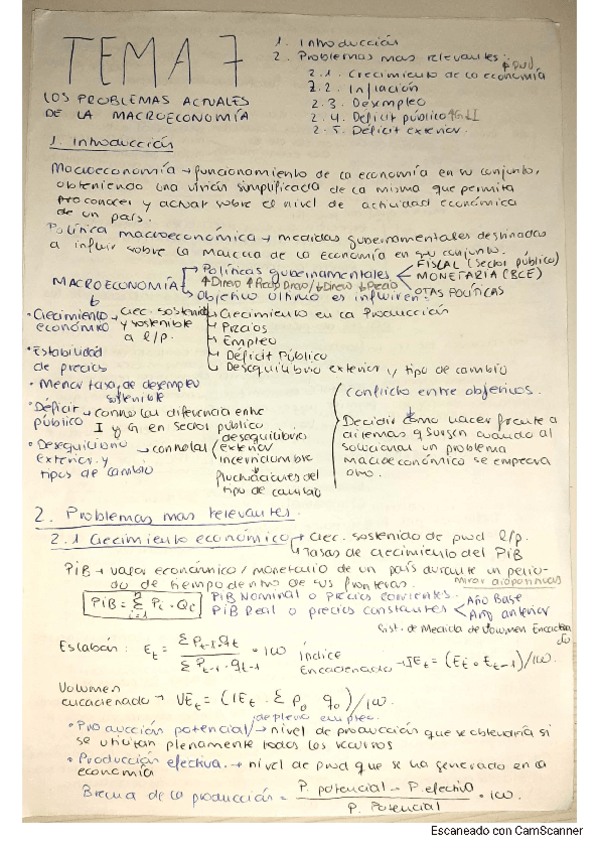 TEMA 7
LOS PROBLEMAS ACTUALES
DE LA MACROECONOMÍA
1. Introducción
2. Problemas mas relevantes
2.1. Crecimiento de la economía
2.2. Inflación
2.3. Desempleo
2.4. Déficit público
2.5. Déficit exterior.
1. Introducción
Macroeconomía → funcionamiento de la economía en su conjunto,
obteniendo una visión simplificada de la misma que permita
conocer y actuar sobre el nivel de actividad económica
de un país.
Política macroeconómica → medidas gubernamentales destinadas
a influir sobre la marcha de la economía en su conjunto.
MACROECONOMÍA
Políticas gubernamentales
FISCAL (Sector público)
MONETARIA (BCE)
OTAS POLÍTICAS
Objetivo último es influir en:
Crecimiento en la Producción
Precios
Empleo
Déficit Público
Desequilibrio exterior y tipo de cambio
• Crecimiento económico → crec. sostenido y sostenible a l/p.
• Estabilidad de precios
• Menor tasa de desempleo sostenible
• Déficit público → controlar diferencia entre I y G en sector público
• Desequilibrio exterior y tipos de cambio → controlar
desequilibrio exterior
incertidumbre
fluctuaciones del tipo de cambio
Conflicto entre objetivos.
Decidir cómo hacer frente a
dilemas q surgen cuando al
solucionar un problema
macroeconómico se empeora
otro.
2. Problemas mas relevantes.
2.1 Crecimiento económico → crec. sostenido de prod l/p.
Tasas de crecimiento del PiB
PiB → valor económico / monetario de un país durante un perio-
do de tiempo dentro de sus fronteras. mirar diapositivas
PiB = Σ Pi · Qi
n
i=1
PiB Nominal o precios corrientes.
PiB Real o precios constantes
Año Base
Año anterior
Sist. de Medida de Volumen
Eslabón: Et = Σ Pt-1 qt / Σ Pt-1 · qt-1 · 100
Índice Encadenado → IEt = (Et · Et-1) / 100.
Volumen encadenado → VEt = (IEt · Σ p0 q0) / 100.
• Producción potencial / de pleno empleo. → nivel de producción que se obtendría si
se utilizan plenamente todos los recursos
• Producción efectiva. → nivel de prod que se ha generado en la
economía
Brecha de la producción = P. potencial - P. efectiva / P. Potencial · 100.
Escaneado con CamScanner